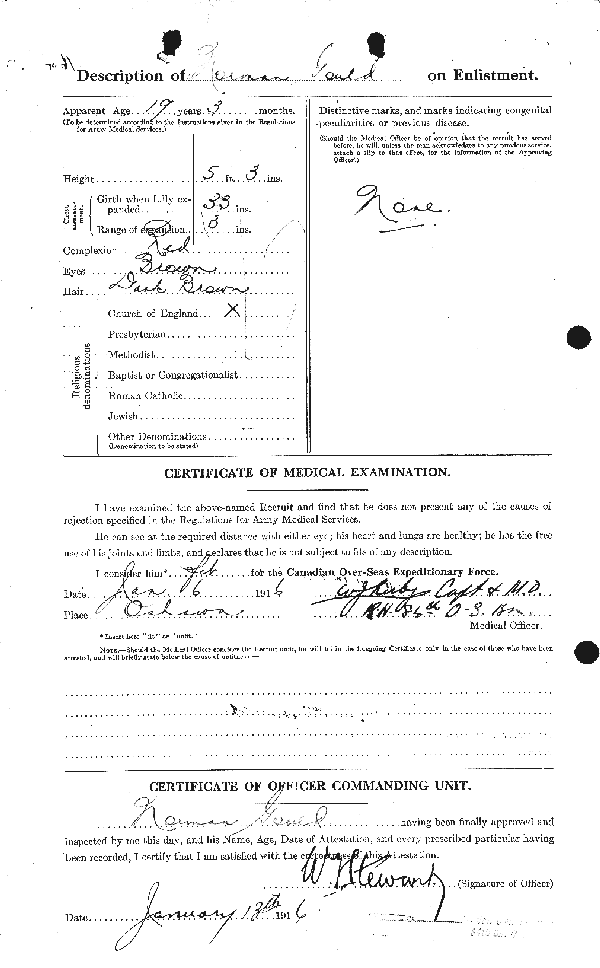 Description of Norman Gould on Enlistment.
Apparent Age 19 years 3 months.
(To be determined according to the instructions given in the Regulations
for Army Medical Services.)
Distinctive marks, and marks indicating congenital
peculiarities or previous disease.
(Should the Medical Officer be of opinion that the recruit has served
before, he will, unless the man acknowledges to any previous service,
attach a slip to that effect, for the information of the Approving
Officer).
Height 5 ft. 3 ins.
Chest measurement.
Girth when fully expanded 33 ins.
Range of expansion 3 ins.
None.
Complexion Red
Eyes Brown
Hair Dark Brown
Religious denominations
Church of England X
Presbyterian
Methodist
Baptist or Congregationalist
Roman Catholic
Jewish
Other Denominations
(Denomination to be stated)
CERTIFICATE OF MEDICAL EXAMINATION.
I have examined the above-named Recruit and find that he does not present any of the causes of
rejection specified in the Regulations for Army Medical Services.
He can see at the required distance with either eye; his heart and lungs are healthy; he has the free
use of his joints and limbs, and declares that he is not subject to fits of any description.
I consider him* fit for the Canadian Over-Seas Expeditionary Force.
Date Jan 1916 Capt & M.O.
Place Oshawa O.S. Bn.
Medical Officer.
*Insert here "fit" or "unfit."
NOTE.—Should the Medical Officer consider the Recruit unfit, he will fill in the foregoing Certificate only in the case of those who have been
attested, and will briefly state below the cause of unfitness:—
CERTIFICATE OF OFFICER COMMANDING UNIT.
Norman Gould having been finally approved and
inspected by me this day, and his Name, Age, Date of Attestation, and every prescribed particular having
been recorded, I certify that I am satisfied with the correctness of this Attestation.
(Signature of Officer)
Date January 13th 1916